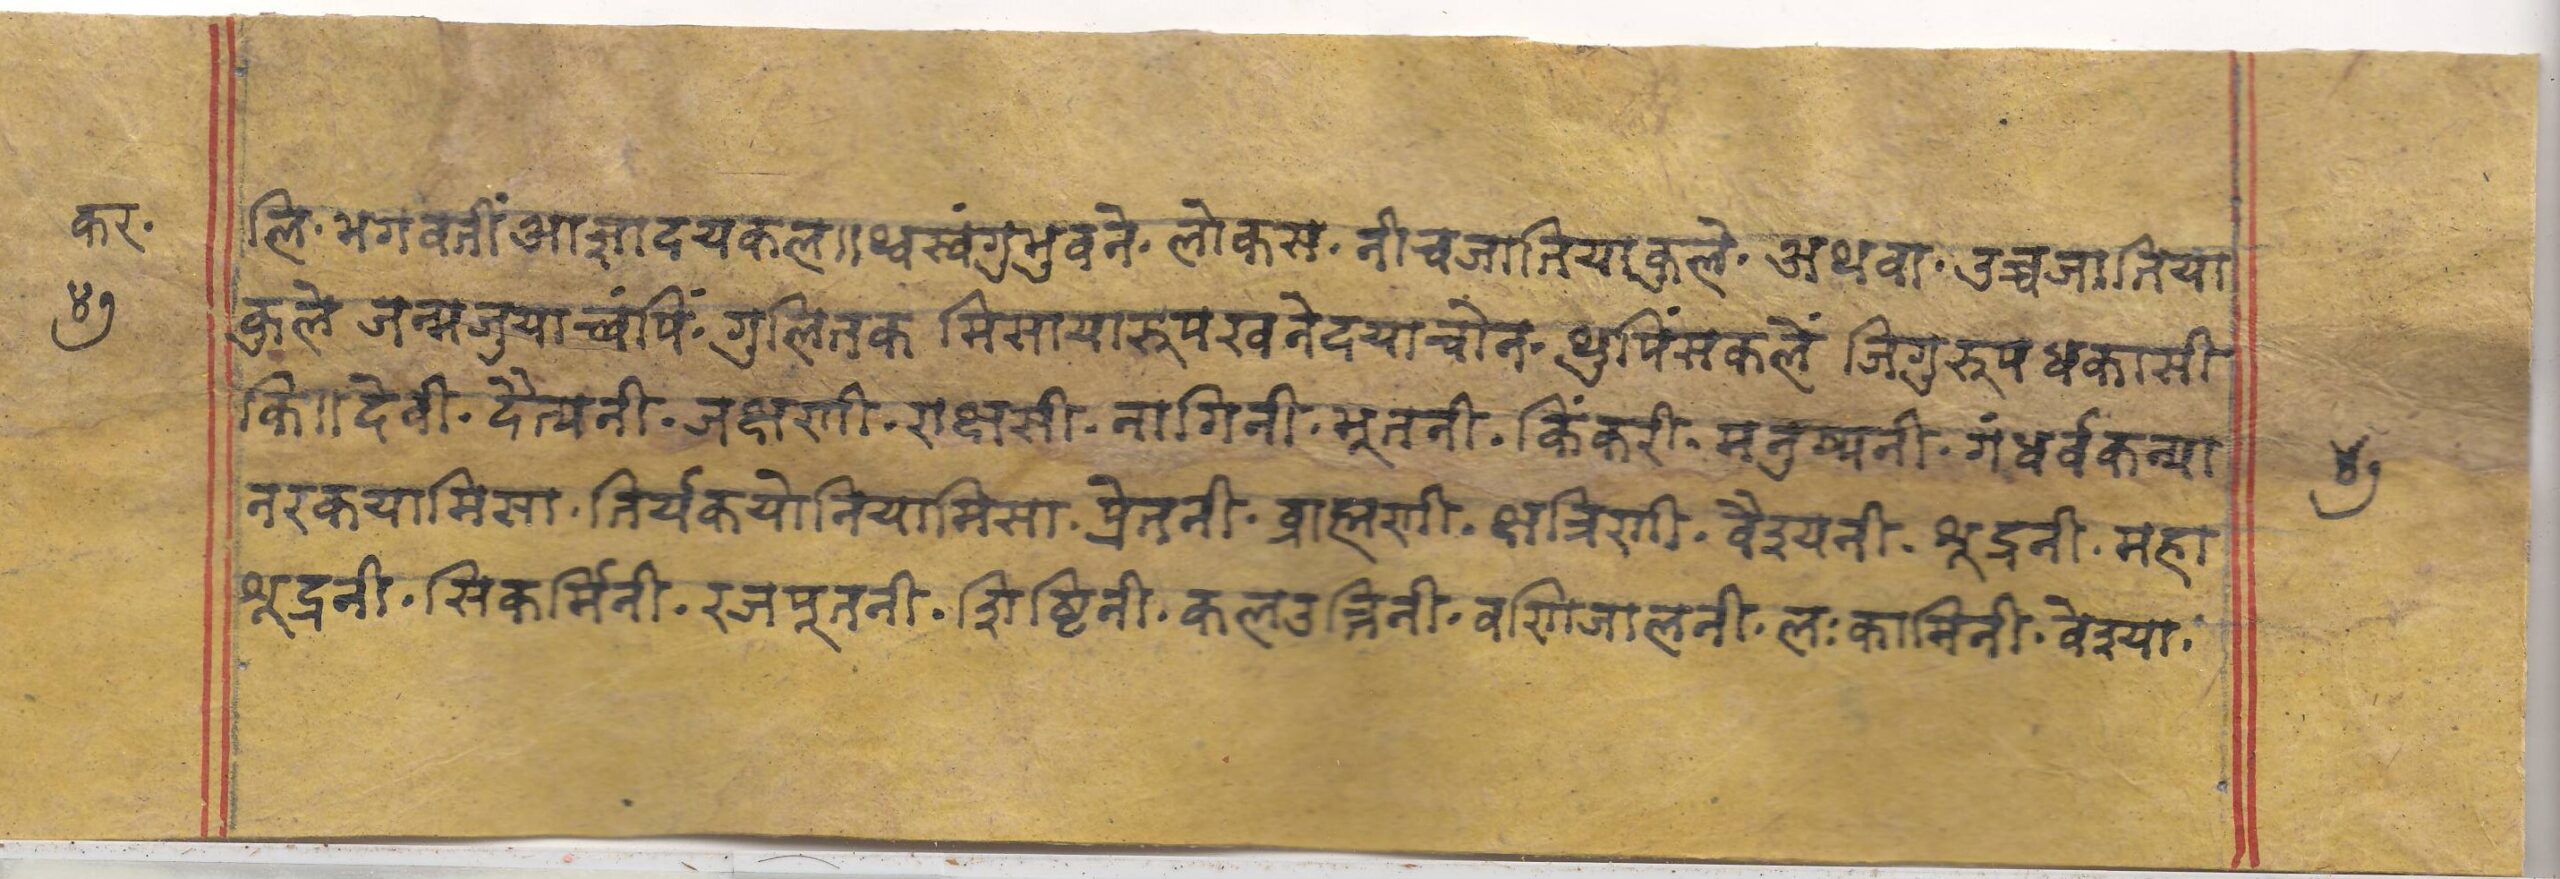 कर.
४७
लि. भगवतीं आज्ञादयकल॥ थ्वस्वंगुभुवने. लोकस. नीचजातियाकुले. अथवा. उच्चजातिया
कुले जन्मजुयाच्वंपिं. गुलितक मिसायारूपखनेदयाचोन. थुपिंसकलें जिगुरूपधकासी
कि॥ देवी. दैत्यनी. जक्षणी. राक्षसी. नागिनी. भूतनी. किंकरी. मनुष्यनी. गंधर्वकन्या
४७
नरकयामिसा. तिर्यकयोनियामिसा. प्रेतनी. ब्राह्मणी. क्षत्रिणी. वैश्यनी. शूद्रनी. महा
शूद्रनी. सिकर्मिनी. रजपूतनी. शिष्टिनी. कलउत्रिनी. वणिजालनी. लःकामिनी. वेश्या.